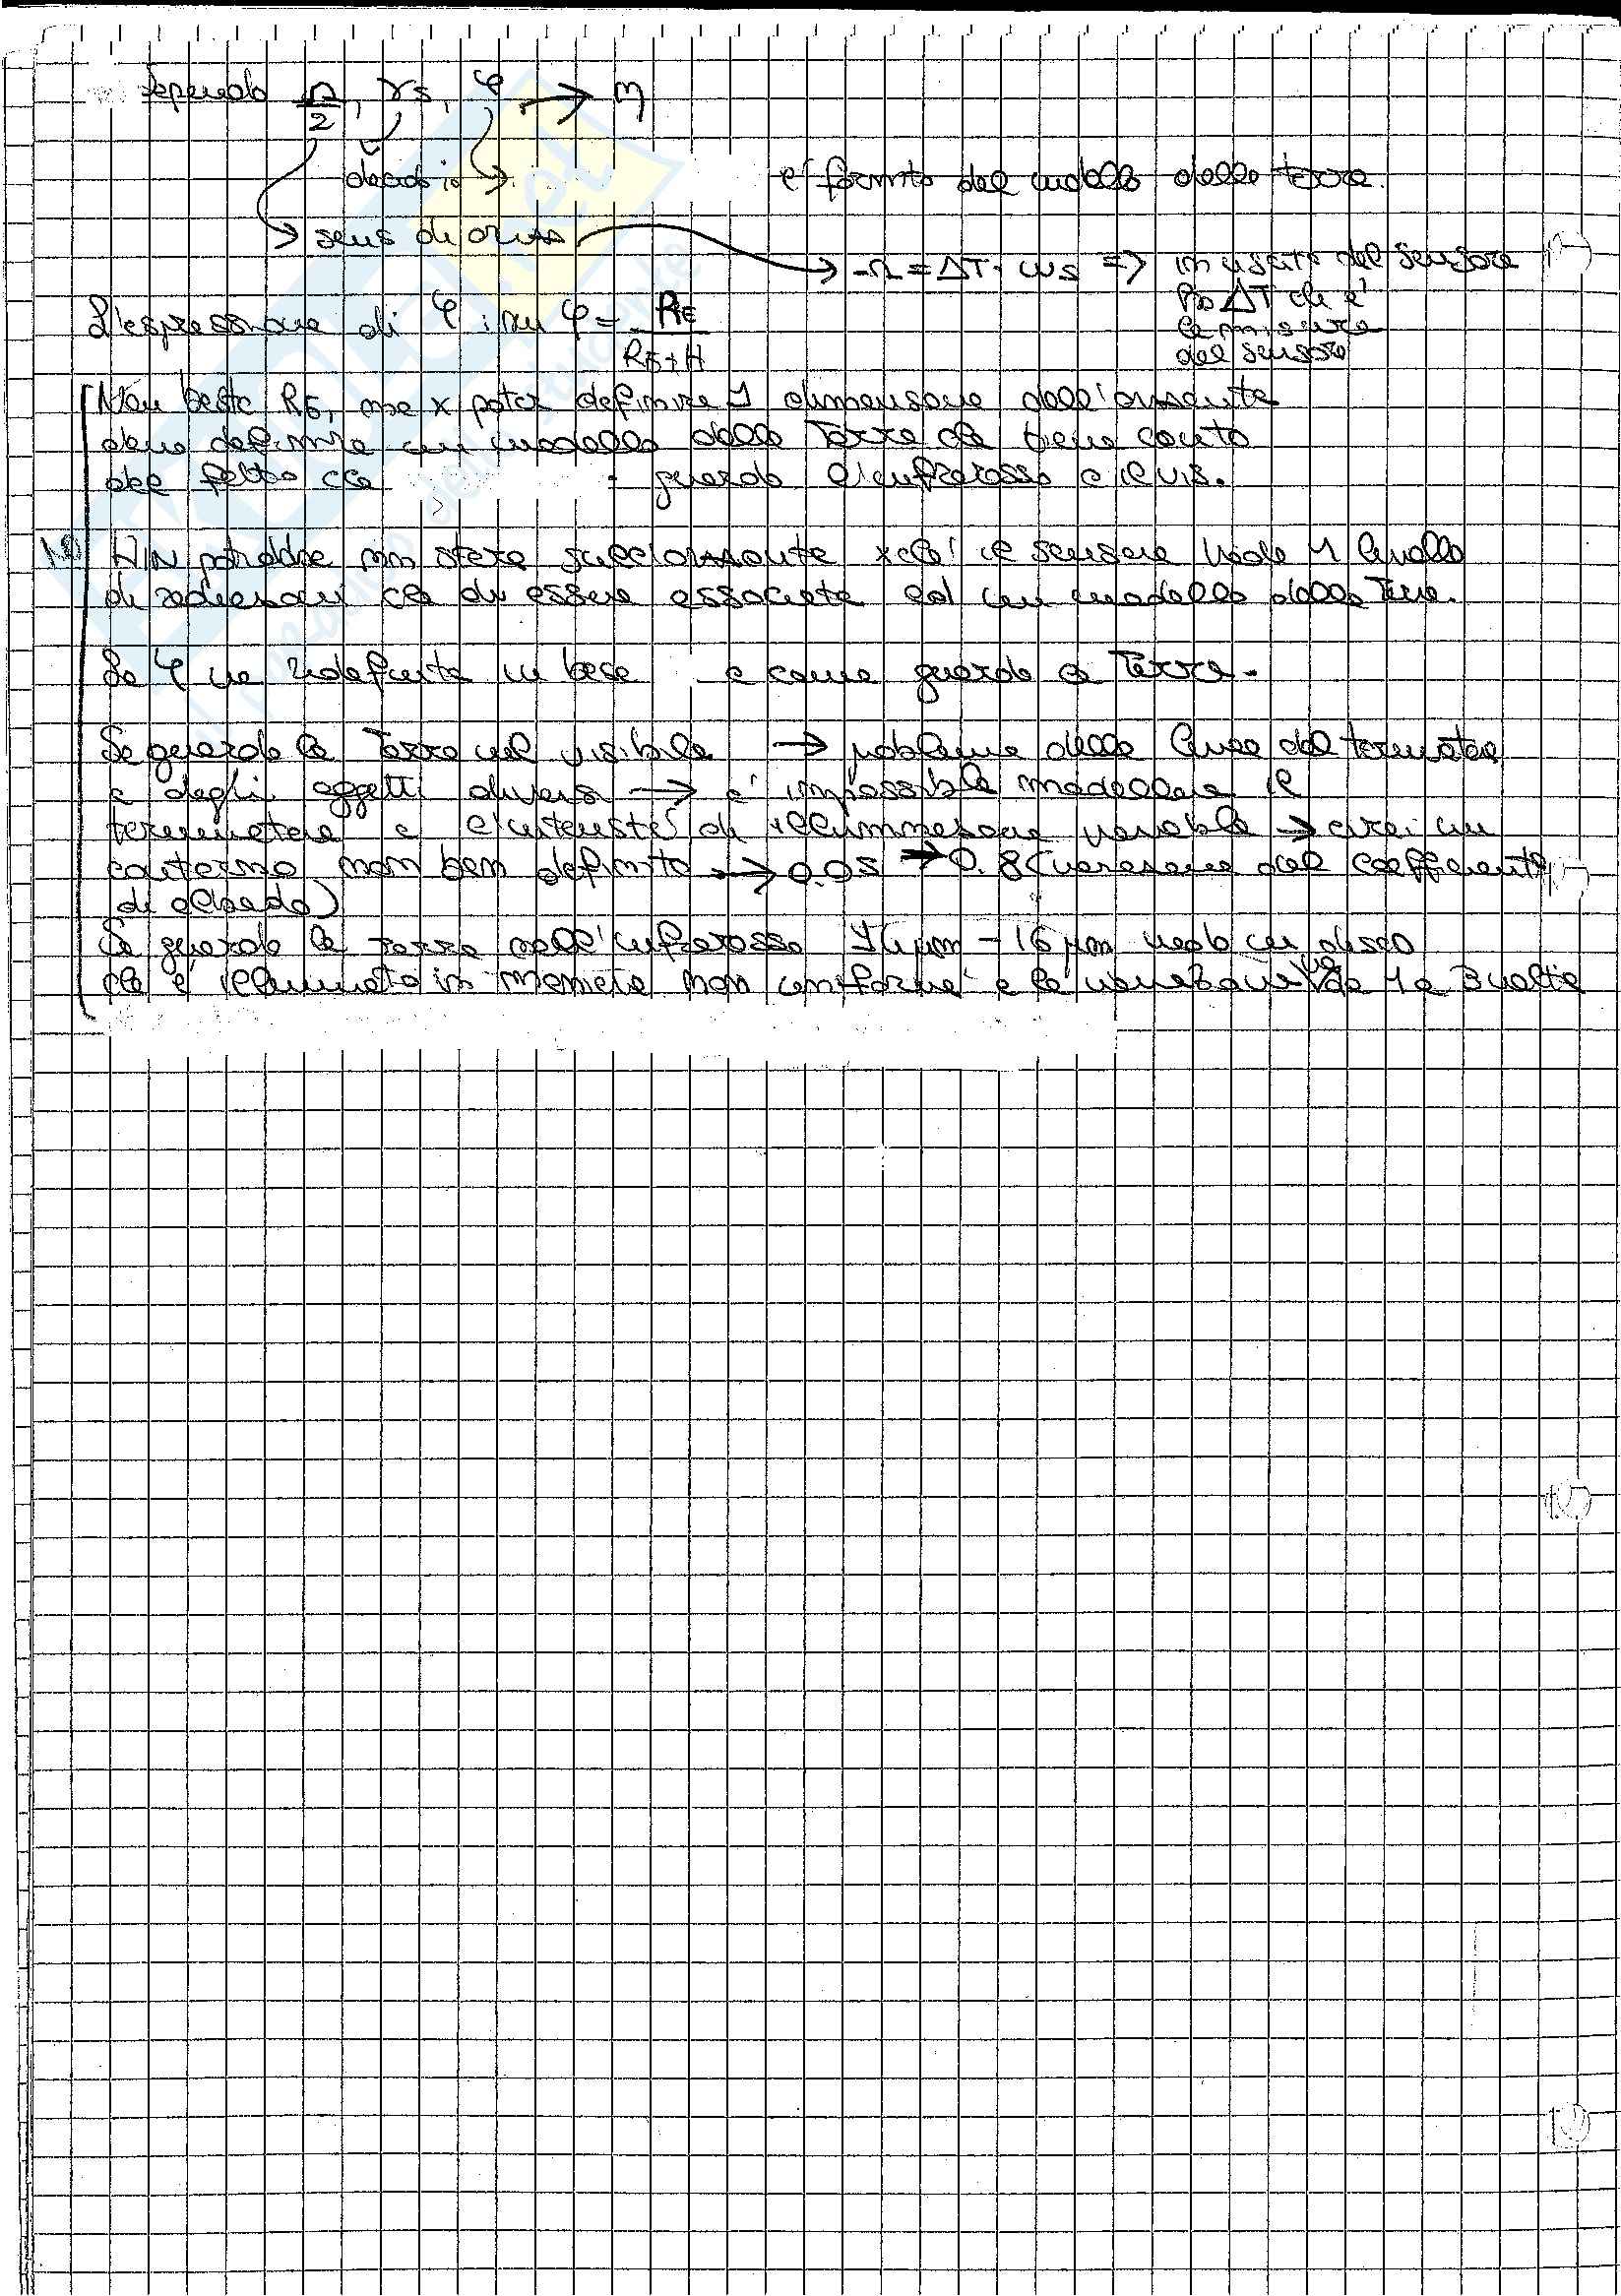 Sapendo Ω/2, γs, φ → η
decado io → è fornito dal modello della terra.
→ sens di orizz → Ω = ΔT · ωs => in uscita dal sensore
ho ΔT che è
la misura
del sensore
L'espressione di φ: sin φ = RE / RE+H
Non basta RE, ma x poter definire 1 dimensione dell'orizzonte
devo definire un modello della Terra che tiene conto
del fatto che guardo l'infrarosso e il VIS.
potrebbe non stare sull'orizzonte xchè il sensore vede 1 livello
di radiazioni che di essere associata ad un modello della Terra.
La φ va ridefinita in base a come guardo la Terra.
Se guardo la Terra nel visibile → problema della luce del terminatore
e degli oggetti diversi → è impossibile modellare il
terminatore e l'intensità di illuminazione variabile → avrei un
contorno non ben definito → 0.05 → 0.8 (variazione del coefficiente
di albedo)
Se guardo la terra nell'infrarosso 14 μm - 16 μm vedo un disco
che è illuminato in maniera non uniforme e la variazione va da 1 a 3 volte